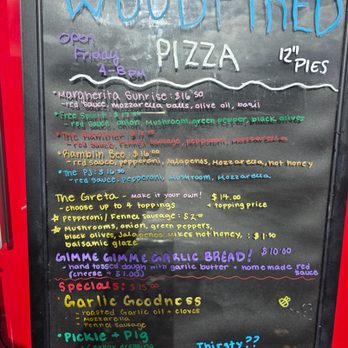 WOODFIRED
Open
Friday
4-8PM
PIZZA
12" PIES
Margherita Sunrise: $16.50
- red sauce, mozzarella balls, olive oil, basil
Free Spirit:
- red sauce, onion, mushroom, green pepper, black olives
The Hammer:
- red sauce, fennel sausage, pepperoni, mozzarella
Ramblin Bee: $16.00
- red sauce, pepperoni, jalapenos, mozzarella, hot honey
The PJ: $16.50
- red sauce, pepperoni, mushroom, mozzarella
The Greta - make it your own! $14.00
- choose up to 4 toppings + topping price
Pepperoni / Fennel Sausage: $2.00
Mushrooms, onion, green peppers,
black olives, Jalapenos, Mikes hot honey, : $1.50
balsamic glaze
GIMME GIMME GARLIC BREAD! $10.00
- hand tossed dough with garlic butter + homemade red
(cheese + $1.00) sauce
Specials: $15.00
Garlic Goodness
- roasted Garlic oil + cloves
- mozzarella
- Fennel sausage
Pickle + Pig
Thirsty??